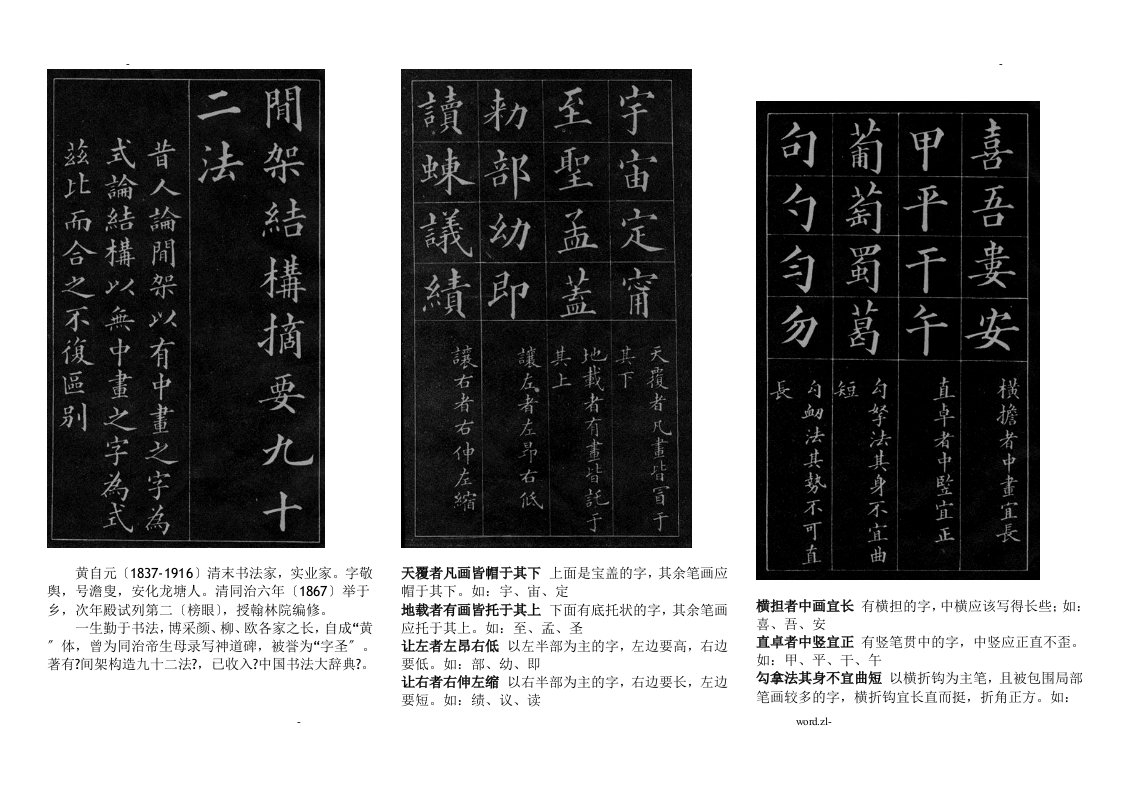 間架結構摘要九十
二法
昔人論間架以有中畫之字為
式論結構以無中畫之字為式
茲比而合之不復區别
黄自元〔1837-1916〕清末书法家，实业家。字敬
舆，号澹叟，安化龙塘人。清同治六年〔1867〕举于
乡，次年殿试列第二〔榜眼〕，授翰林院编修。
一生勤于书法，博采颜、柳、欧各家之长，自成“黄
〞体，曾为同治帝生母录写神道碑，被誉为“字圣〞。
著有?间架构造九十二法?，已收入?中国书法大辞典?。
宇宙定甯
至聖孟蓋
勑部幼即
讀蝀議績
天覆者凡畫皆冒于
其下
地載者有畫皆託于
其上
讓左者左昂右低
讓右者右伸左縮
天覆者凡画皆帽于其下 上面是宝盖的字，其余笔画应
帽于其下。如：宇、宙、定
地载者有画皆托于其上 下面有底托状的字，其余笔画
应托于其上。如：至、孟、圣
让左者左昂右低 以左半部为主的字，左边要高，右边
要低。如：部、幼、即
让右者右伸左缩 以右半部为主的字，右边要长，左边
要短。如：绩、议、读
喜吾婁安
甲平干午
葡萄蜀葛
句勺匀勿
橫擔者中畫宜長
直卓者中竪宜正
勾拏法其身不宜曲
短
勾衂法其勢不可直
長
横担者中画宜长 有横担的字，中横应该写得长些；如：
喜、吾、安
直卓者中竖宜正 有竖笔贯中的字，中竖应正直不歪。
如：甲、平、干、午
勾拿法其身不宜曲短 以横折钩为主笔，且被包围局部
笔画较多的字，横折钩宜长直而挺，折角正方。如：
- word.zl-